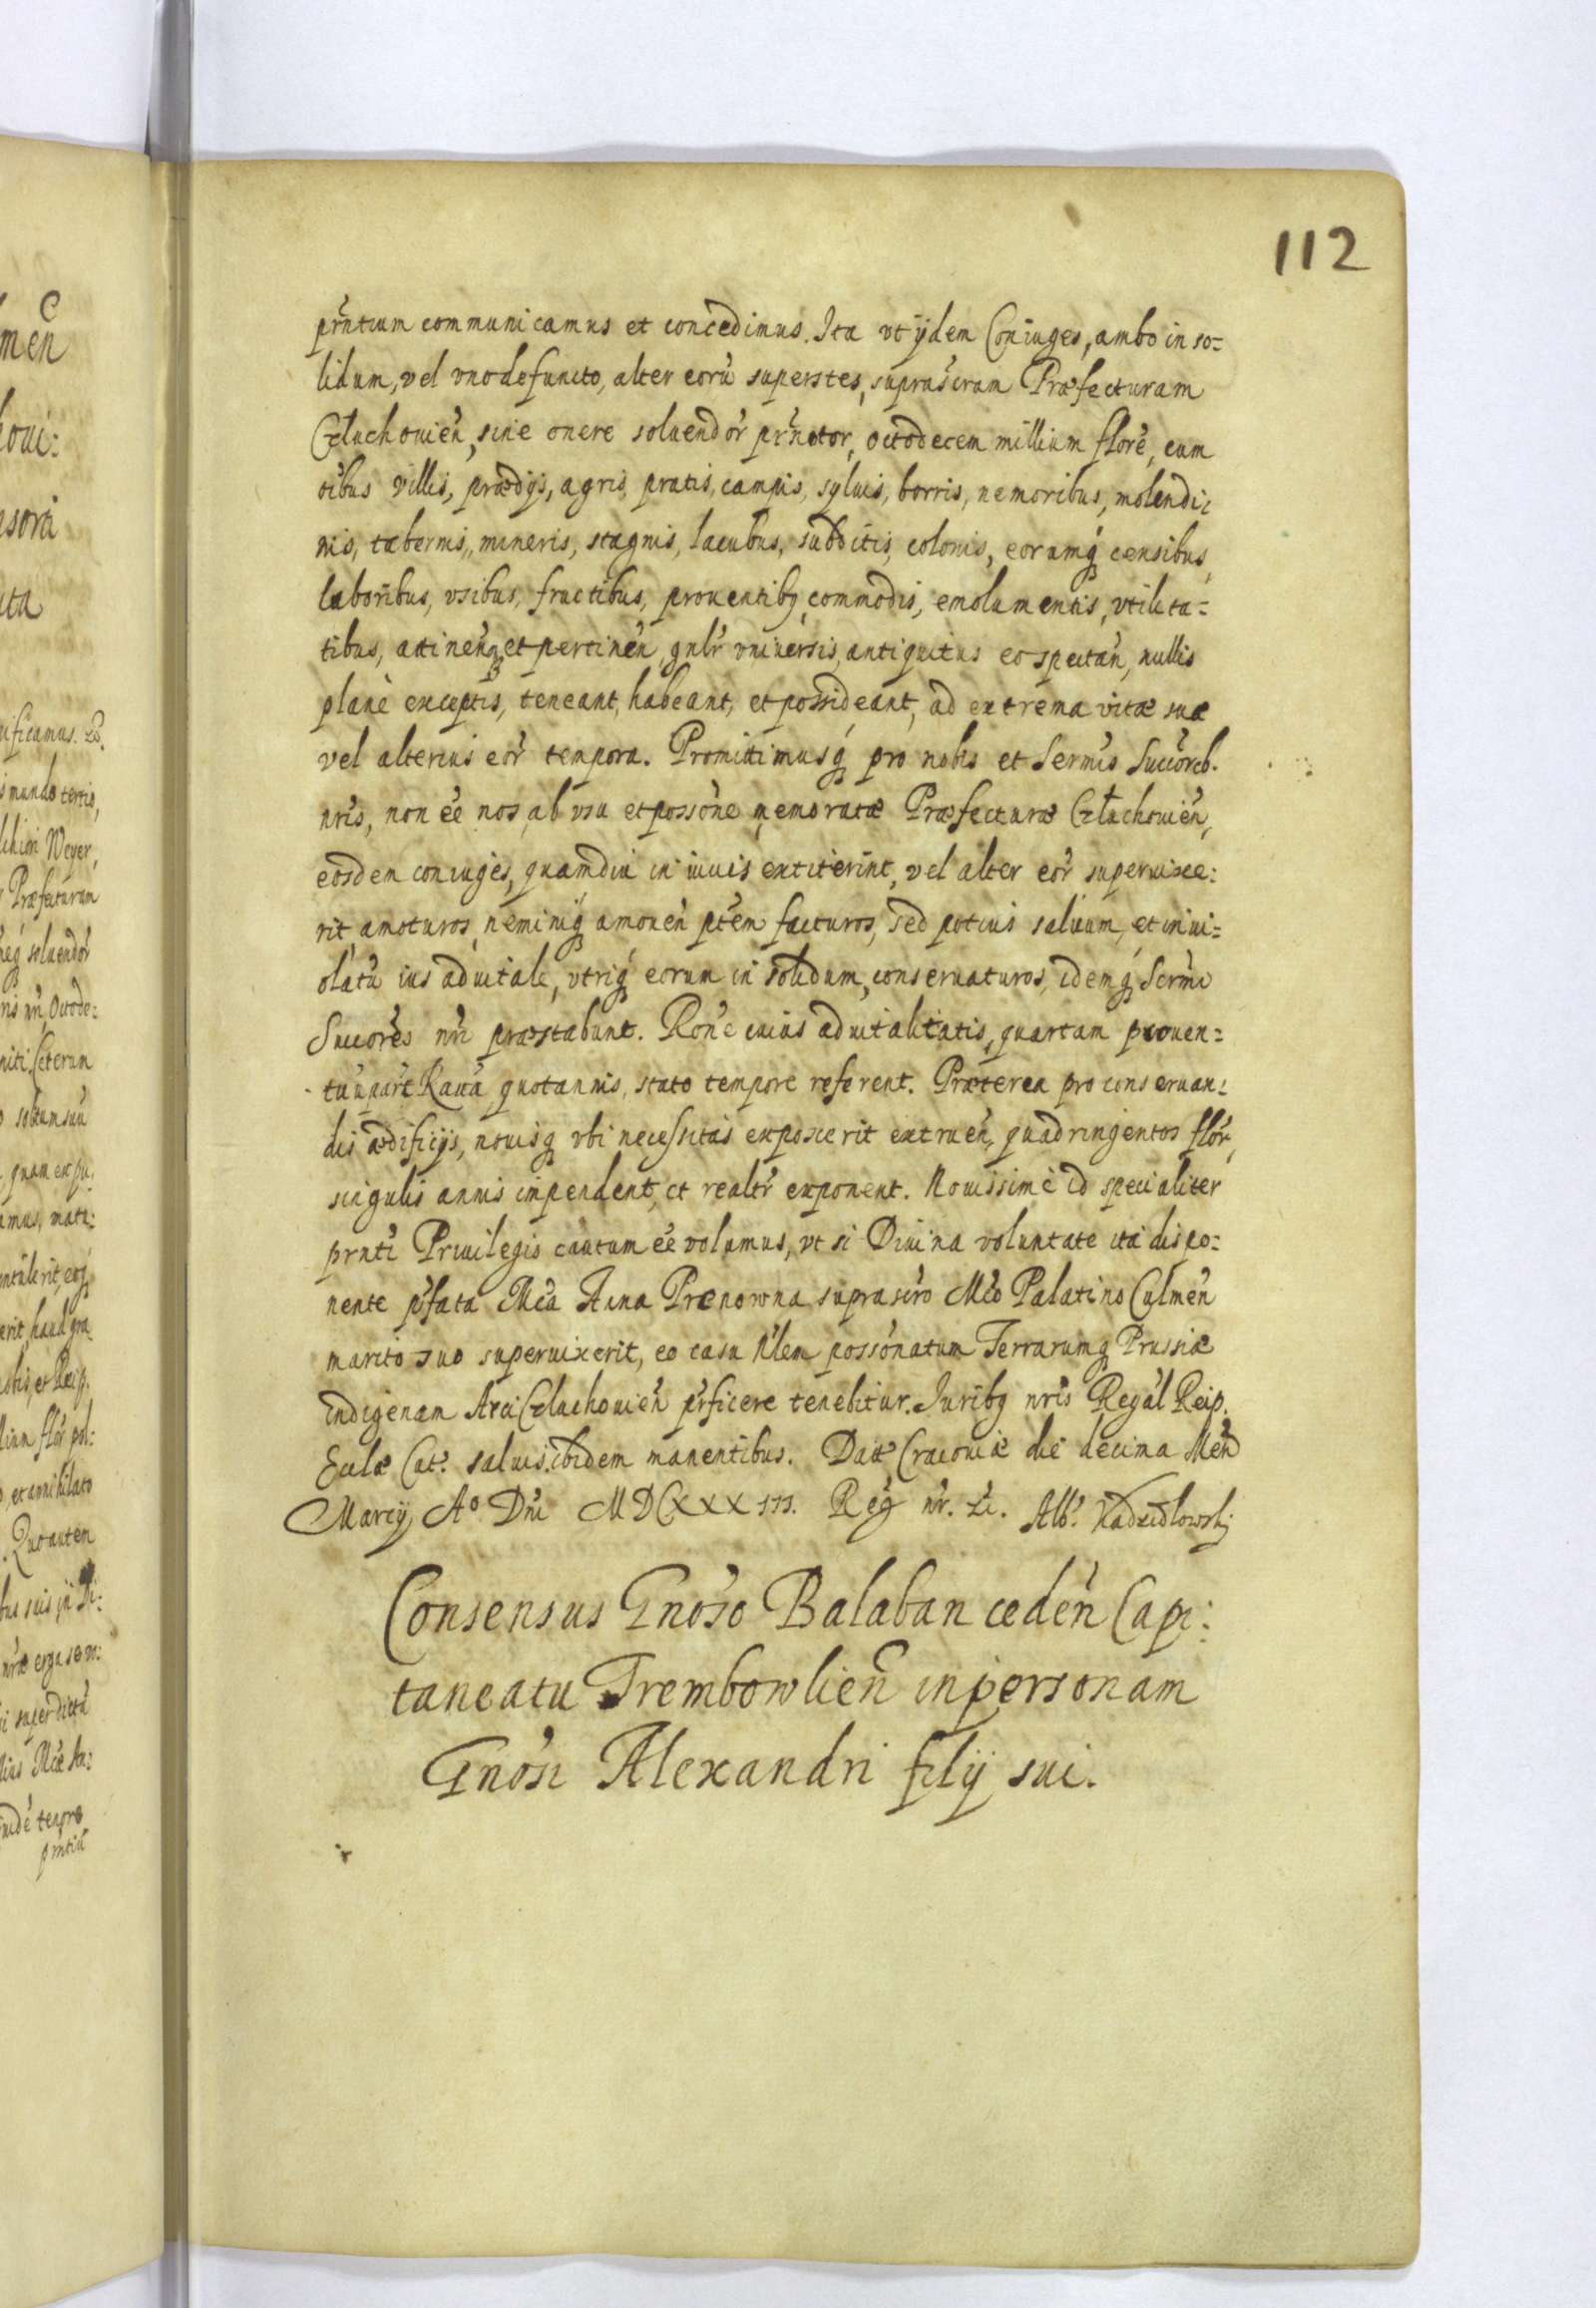 112
prñtium communicamus et concedimus. Ita vt ijdem Coniuges, ambo in so=
lidum, vel vno defuncto, alter eorũ superstes, suprascram Præfecturam
Człuchouieñ, sine onere soluendor̃ prñotor, octodecem millium florẽ, cum
oĩbus villis, prædijs, agris, pratis, campis, syluis, borris, nemoribus, molendi:
nis, tabernis, mineris, stagnis, lacubus, subditis, colonis, eorumq censibus,
laboribus, vsibus, fructibus, prouentibq commodis, emolumentis, vtilita=
tibus, attineñ et pertineñ gnlr̃ vniuersis, antiquitus eo spectañ, nullis
planè exceptis, teneant, habeant, et possideant, ad extrema vitæ suæ
vel alterius eor̃ tempora. Promittimusq pro nobis et Sermis Succoreb.
nris, non eẽ nos, ab vsu et possone memoratæ Præfecturæ Człuchouieñ,
eosdem coniuges, quamdiu in viuis extiterint, vel alter eor̃ superuixe:
rit amoturos, neminiq amoueñ ptẽm facturos, sed potius saluum, et inui=
olatũ ius aduitale, vtriq eorum in solidum, conseruaturos, idemq Sermi
Succores nri præstabunt. Rone cuius aduitalitatis, quartam prouen=
tuũ partẽ Rauã quotannis, stato tempore referent. Præterea pro conseruan:
dis ædificijs, nouisq vbi necessitas exposcerit extrueñ, quadringentos flor,
singulis annis inpendent, et realtr̃ exponent. Nouissimè id specialiter
prnti Priuilegio cautum eẽ volumus, vt si Diuina voluntate ita dispo=
nente p̃fata Mca Anna Prænowna suprascro Mco Palatino Culmeñ
marito suo superuixerit, eo casu Nlem possonatum Terrarumq Prussiæ
indigenam Arci Człuchouieñ p̃ficere tenebitur. Juribq nris Regal Reip.
Ecclæ Cat. saluis. ibidem manentibus. Datæ Cracouiæ die decima Meñ
Marcij Aº Dni MDCXXXIII. Reg nr. &c. Alb. Kadzidlowskj
Consensus Gnoso Balaban cedeñ Capi:
taneatu Trembowlieñ in personam
Gnosi Alexandri filij sui.